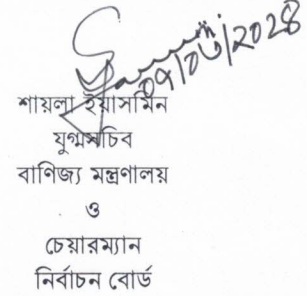 শায়লা ইয়াসমিন
যুগ্মসচিব
বাণিজ্য মন্ত্রণালয়
ও
চেয়ারম্যান
নির্বাচন বোর্ড